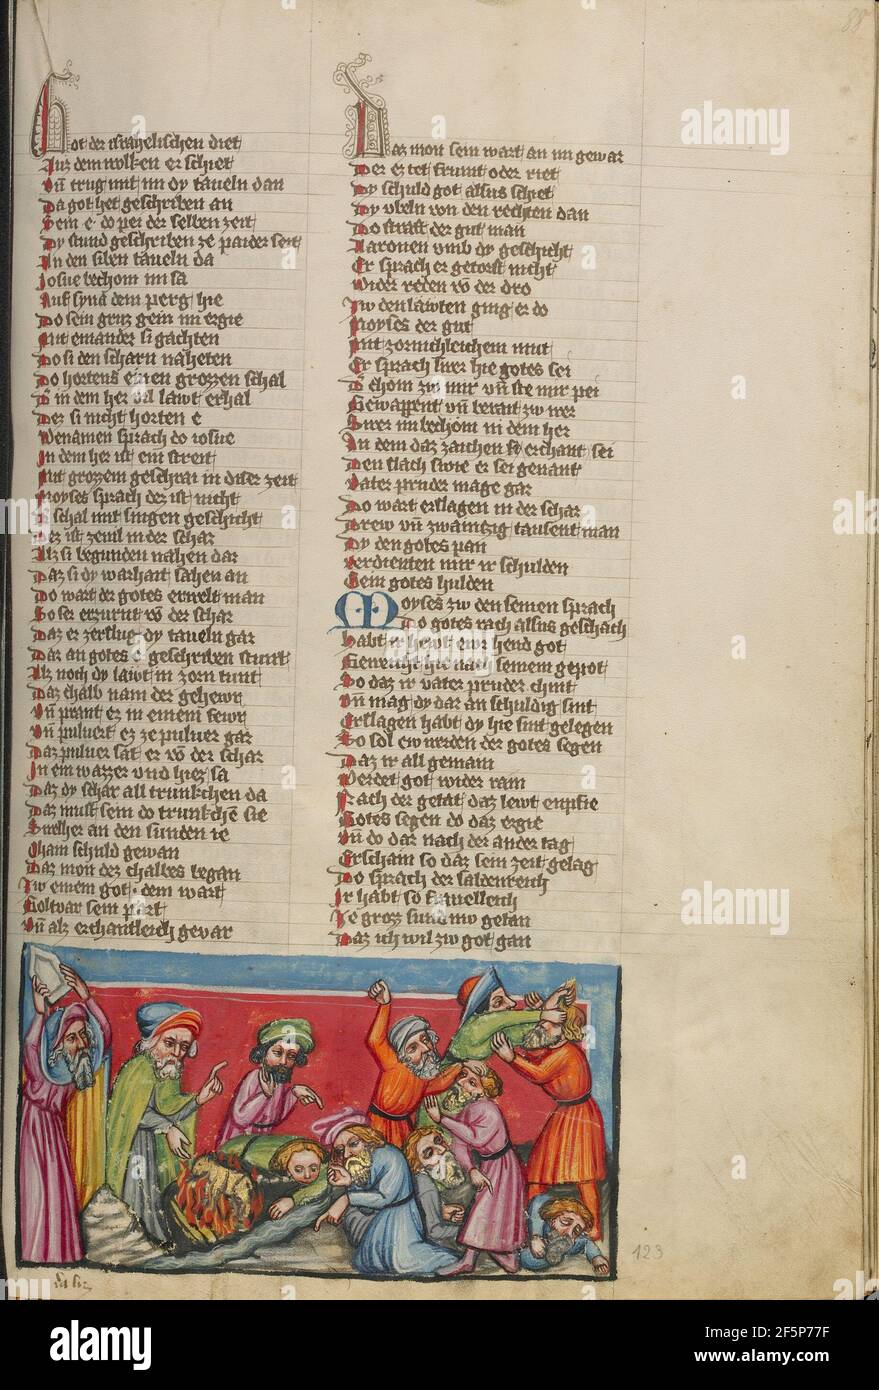 Got der israhelischen diet
Auz dem wolken er schiet
Vn̄ trug mit im dy taueln dan
Da got het geschriben an
Sein e do pei der selben zeit
Dy stund geschriben ze paider seit
An den siben taueln da
Josue bechom im sa
Auf synd dem perg hie
Do sein gruz gein im ergie
Mit einander si gachten
Do si den scharn naheten
Do hortens einen grozzen schal
in dem her vil lawt erhal
Der si nicht horten e
Wenamen sprach do iosue
In dem her ist ein streit
Mit grozzem geschrai in diser zeit
Moyses sprach dez ist nicht
schal mit singen geschicht
Dez ist zeuil in der schar
Alz si begunden nahen dar
Daz si dy warhait sahen an
Do wart der gotes erwelt man
So ser erzurnt vō der schar
Daz er zerslug dy taueln gar
Dar an gotes e geschriben stunt
Alz noch dy lawt in zorn tunt
Daz chalb nam der gehewr
Vn̄ prant ez in einem fewr
Vn̄ puluert ez ze puluer gar
Daz puluer sat er vō der schar
In ein wazzer vnd hiez sa
Daz dy schar all trunkchen da
Daz must sein do trunkchē sie
Swelher an den sunden ie
Cham schuld gewan
Daz mon dez chalbes began
Zw einem got dem wart
Goltvar sein part
Vn̄ alz erchantleich gevar
Daz mon sein wart an im gewar
Der ez tet frunt oder riet
Dy schuld got alsus schiet
Dy vbeln von den rechten dan
Do straft der gut man
Aaronen vmb dy geschicht
Er sprach er getorst nicht
Wider reden vō der dro
Zw den lawten ging er do
Moyses der gut
Mit zornichleichem mut
Er sprach swer hie gotes sei
chom zw mir vn̄ ste mir pei
Gewappent vn̄ berait zw wer
Swer im bechom in dem her
An dem daz zaichen erchant sei
Den slach swie er sei genant
Vater pruder mage gar
Do wart erslagen in der schar
Drew vn̄ zwainzig tausent man
Dy den gotes pan
Verdienten mir ir schulden
Sein gotes hulden
Moyses zw den seinen sprach
Do gotes rach alsus geschach
Habt ir hewt ewr hend got
Geweicht hie nach seinem gepot
So daz ir vater pruder chint
Vn̄ mag dy dar an schuldig sint
Erslagen habt dy hie sint gelegen
So sol ew werden der gotes segen
Daz ir all gemain
Werdet got wider rain
Nach der getat daz lewt enpfie
Gotes segen do daz ergie
Vn̄ do dar nach der ander tag
Erscham so daz sein zeit gelag
Do sprach der saldenreich
Ir habt so frauelleich
Je groz sund nw getan
Daz ich wil zw got gan
88
123
alamy
Image ID: 2F5P77F
www.alamy.com